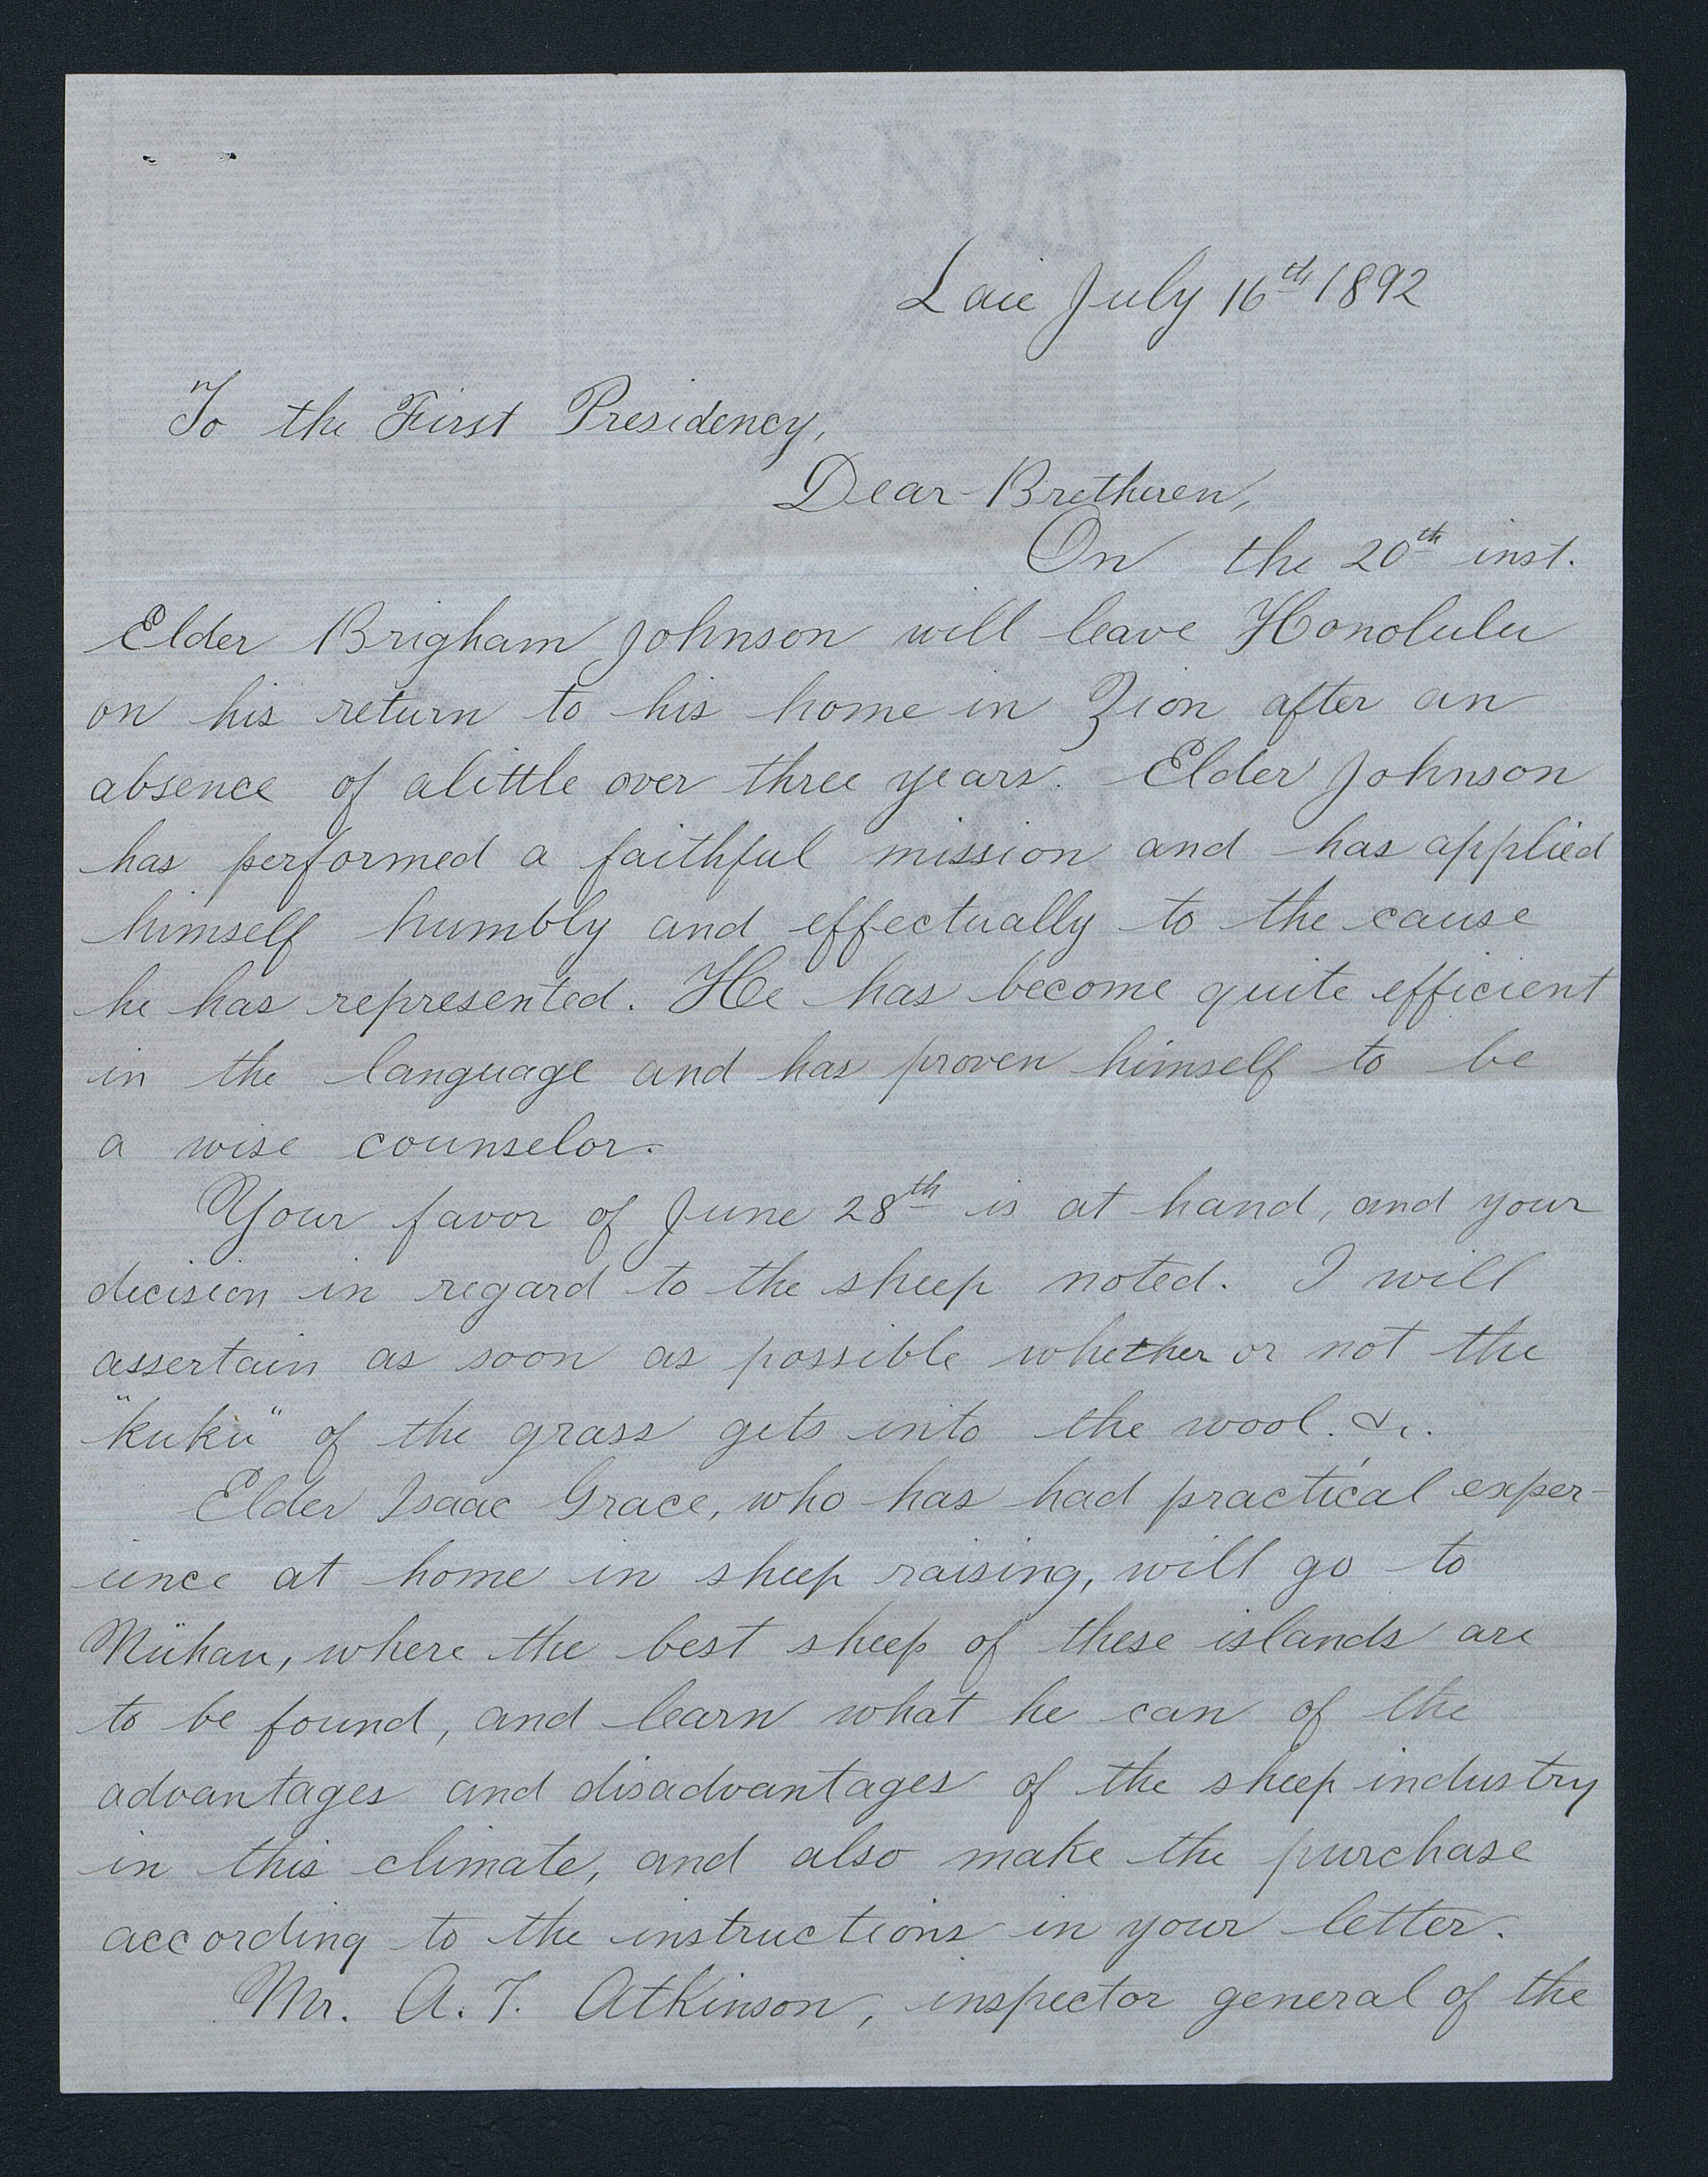 Laie July 16th 1892
To the First Presidency,
Dear Bretheren,
On the 20th inst.
Elder Brigham Johnson will leave Honolulu
on his return to his home in Zion after an
absence of alittle over three years. Elder Johnson
has performed a faithful mission and has applied
himself humbly and effectually to the cause
he has represented. He has become quite efficient
in the language and has proven himself to be
a wise counselor.
Your favor of June 28th is at hand, and your
decision in regard to the sheep noted. I will
assertain as soon as possible whether or not the
"kuku" of the grass gets into the wool. &c.
Elder Isaac Grace, who has had practical exper-
ience at home in sheep raising, will go to
Niihau, where the best sheep of these islands are
to be found, and learn what he can of the
advantages and disadvantages of the sheep industry
in this climate, and also make the purchase
according to the instructions in your letter.
Mr. A. T. Atkinson, inspector general of the